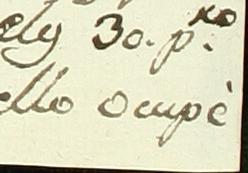 ely 30. p.^xo
ello ocupè